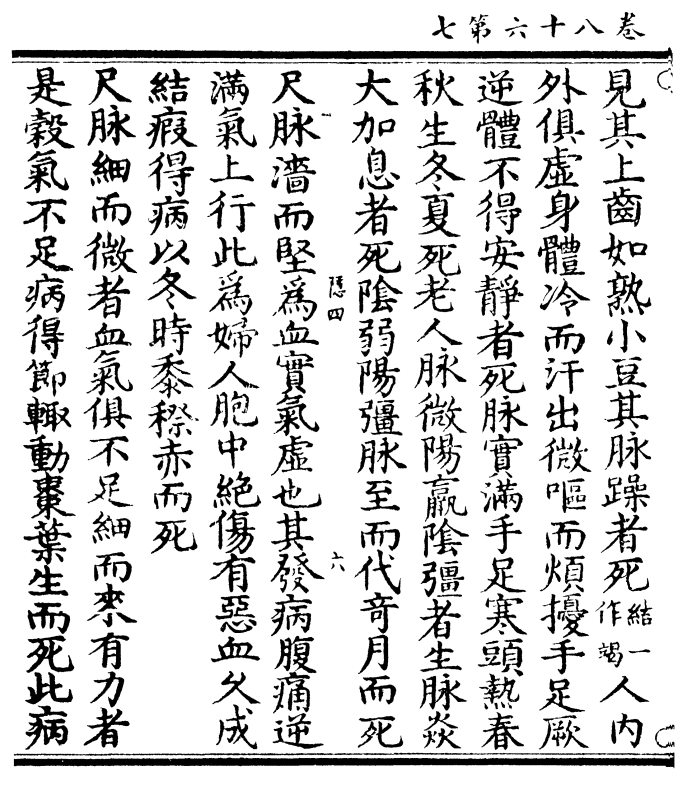 卷八十六第七
見其上齒如熟小豆其脉躁者死結一作竭人內
外俱虛身體冷而汗出微嘔而煩擾手足厥
逆體不得安靜者死脉實滿手足寒頭熱春
秋生冬夏死老人脉微陽羸陰彊者生脉焱
大加息者死陰弱陽彊脉至而代奇月而死
尺脉濇而堅爲血實氣虛也其發病腹痛逆
滿氣上行此爲婦人胞中絶傷有惡血乆成
結瘕得病以冬時黍穄赤而死
尺脉細而微者血氣俱不足細而來有力者
是糓氣不足病得節輙動棗葉生而死此病
隱四
六